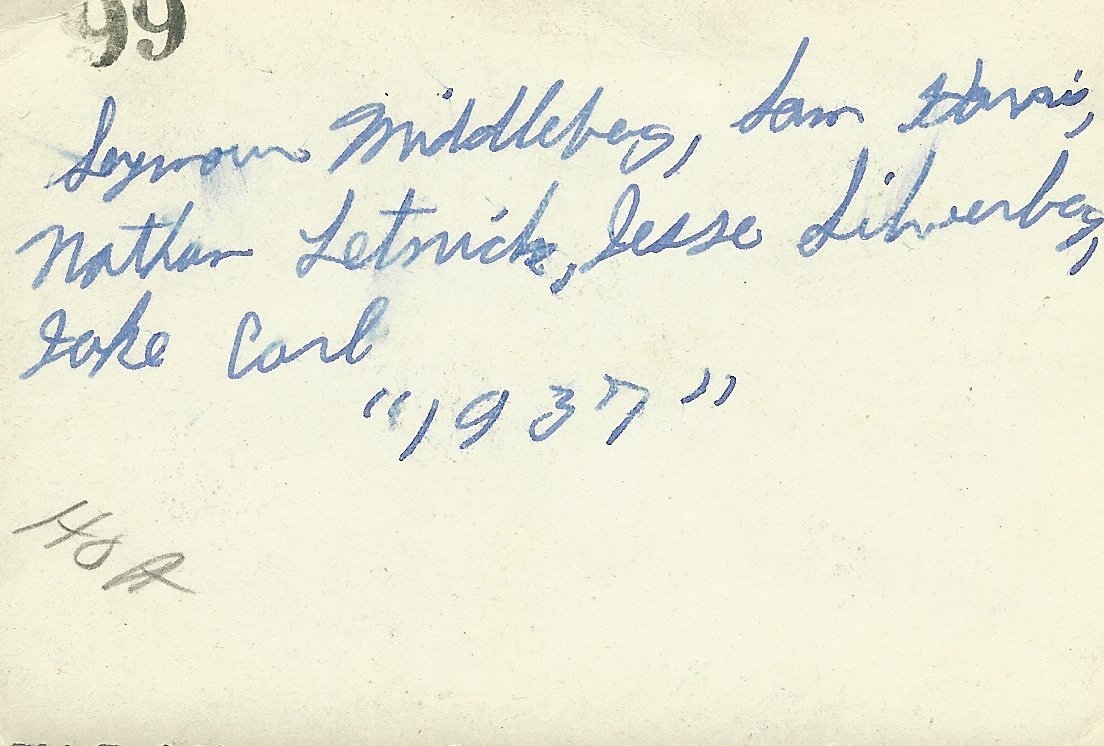 99
Seymour Middlebeg, Sam Harris,
Nathan Letnick, Jesse Silverbeg,
Jake Carl
"1937"
HOR